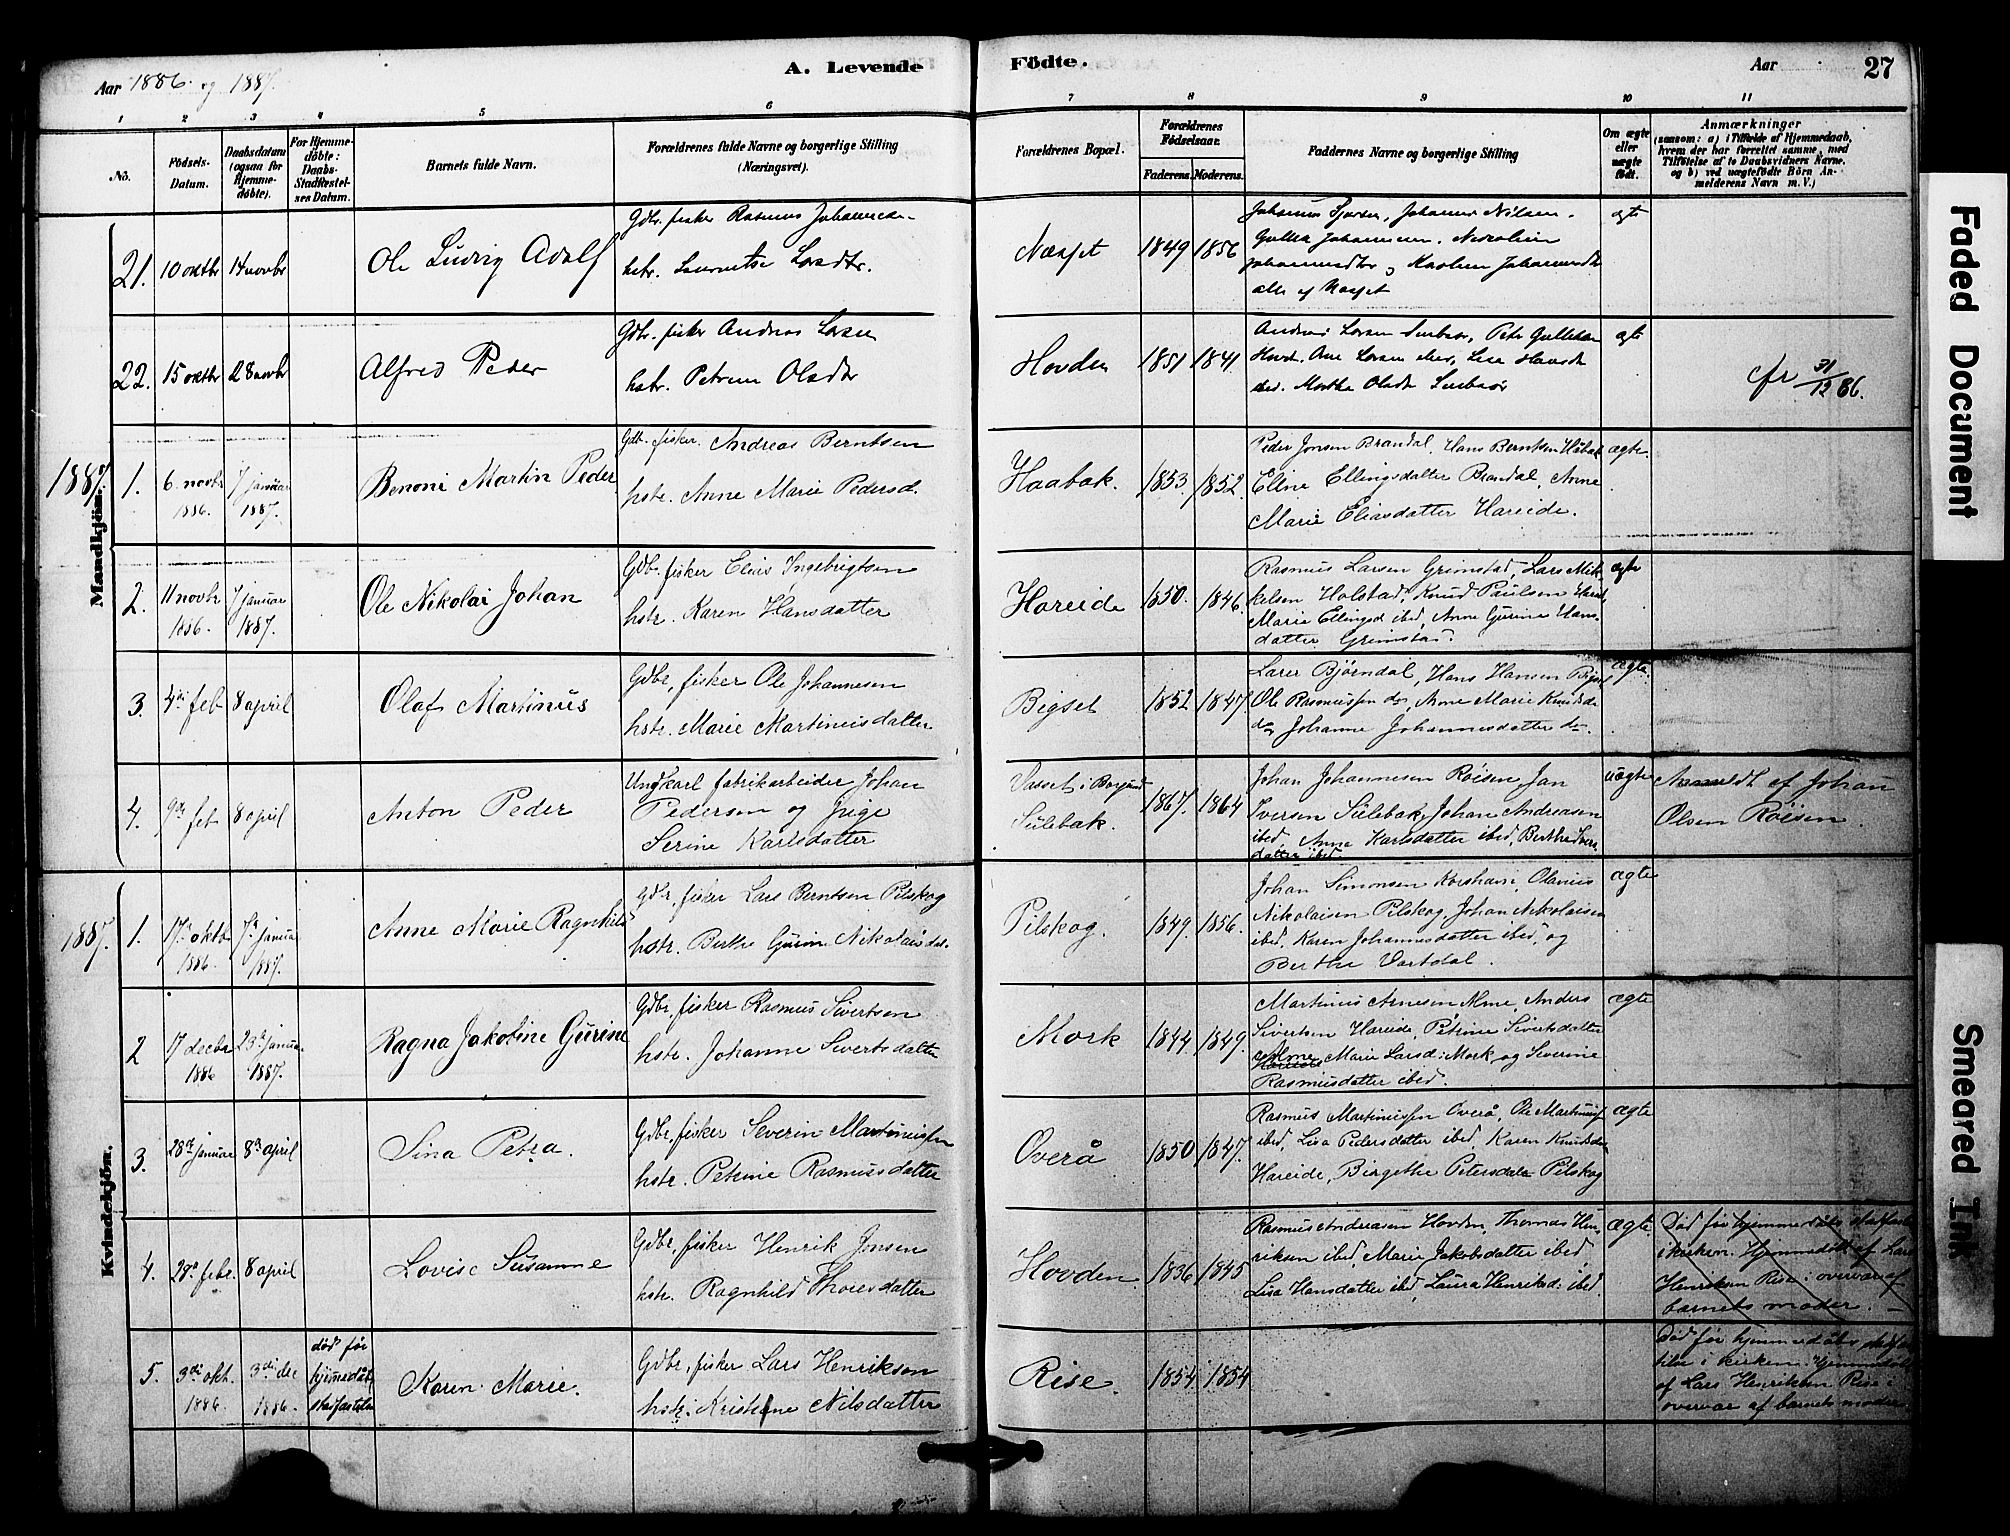 Aar 1886 og 1887.
A. Levende Födte.
Aar 27
1 2 3 4 5 6 7 8 9 10 11
No.
Födsels-Datum.
Daabsdatum (ogsaa for Hjemmedøbte).
For Hjemmedøbte: Daabs-Stadfæstelses Datum.
Barnets fulde Navn.
Forældrenes fulde Navne og borgerlige Stilling (Næringsvei).
Forældrenes Bopæl.
Forældrenes Födselsaar.
Faderens. Moderens.
Faddernes Navne og borgerlige Stilling
Om ægte eller uægte födt.
Anmærkninger
(saasom: a) i Tilfælde af Hjemmedaab, hvem der har forrettet samme, med Tilföielse af to Daabsvidners Navne, og b) ved uægtefödte Börn Anmelderens Navn m. V.)
Mandkjön.
21. 10 oktbr 14 novbr
Ole Ludvig Adolf
Gdbr. fisker Rasmus
hstr.
1849 1856
Johannes Nilsen
alle af
ægte
22. 15 oktbr 28 novbr
Alfred Peder
Gdbr. fisker Andreas Larsen
hstr. Petrine Olsdtr
Hovden
1851 1841
ægte
cfr 31/12 86.
1887.
1. 6 novbr 1886 7 januar 1887.
Benoni Martin Peder
Gdb. fisker. Andreas Berntsen
hstr. Anne Marie Pedersd.
Haabak. 1853. 1852.
Peder Jonsen Brandal, Hans Berntsen Håbak
Eline Ellingsdatter Brandal, Anne
Marie Eliasdatter Hareide.
ægte
2. 11 novbr 1886. 7 januar 1887.
Ole Nikolai Johan
Gdbr. fisker Elias Ingebrigtsen
hstr. Karen Hansdatter
Hareide 1850. 1846.
Rasmus Larsen Grimstad, Lars Mik-
kelsen Holstad, Knud Paulsen
Marie Ellingsd ibid, Anne Gurine Hans-
datter Grimstad.
ægte
3. 4de feb 8 april
Olaf Martinus
Gdbr, fisker Ole Johannesen
hstr. Marie Martinusdatter
Bigset 1852 1847.
Lars Bjørndal, Hans Hansen Bigset
Ole Rasmussen do, Anne Marie
do, Johanne Johannesdatter do.
ægte
4. 9de feb 8 april
Anton Peder
Ungkarl fabrikarbeider Johan
Pedersen og Pige
Serine Karlsdatter
Vasset i Borgund
Sulebak.
1867. 1864
Johan Johannesen Röisen, Jan
Iversen Sulebak, Johan Andreasen
ibid, Anne Karlsdatter ibid, Berthe Ivers
datter ibid.
uægte
Anmeldt af Johan
Olsen Röisen.
Kvindekjön.
1887.
1. 17de oktbr 1886 7de januar 1887.
Anne Marie Ragnhild
Gdbr, fisker Lars Berntsen Pilskog
hstr. Berthe Gurine Nikolaisdat.
Pilskog. 1849. 1856.
Johan Simonsen Korshavn, Olanus
Nikolaisen Pilskog, Johan Nikolaisen
ibid, Karen Johannesdatter ibid, og
Berthe Vartdal.
ægte
2 17 decbr 1886 23de januar 1887.
Ragna Jakobine Gurine
Gdbr, fisker Rasmus Sivertsen
hstr. Johanne Sivertsdatter
Mork 1844 1849.
Martinus Arnesen Alme, Anders
Sivertsen Hareide, Petrine Sivertsdatter
Alme, Marie Larsd: Mork og Severine
Hareide
Rasmusdatter ibid.
ægte
3. 28de januar 8de april
Sina Petra.
Gdbr, fisker Severin Martinussen
hstr. Petrine Rasmusdatter
Overå 1850 1847.
Rasmus Martinussen Overå, Ole Martinuss
ibid, Lisa Pedersdatter ibid, Karen Knutsdr
Hareide, Birgethe Petersdatr Pilskog
ægte
4. 28de febr. 8 april
Lovise Susanne
Gdbr, fisker Henrik Jonsen
hstr. Ragnhild Thoresdatter
Hovden 1836 1845
Rasmus Andreasen Hovden, Thomas Hen-
riksen ibid, Marie Jakobsdatter ibid,
Lisa Hansdatter ibid, Laura Henriksd: ibid.
ægte
Död för hjemmedåbs stadfæst
i kirken. Hjemmedöbt af Lars
Henriksen Rise i overvær af
barnets moder.
5. 3die okt. 1886. 3die dec 1886.
död för
hjemmedåbs
stadfæstelse
Karen Marie.
Gdbr, fisker Lars Henriksen
hstr. Kristiane Nilsdatter
Rise. 1854 1854
Död för hjemmedåbs stadfæs-
telse i kirken. Hjemmedöbt
af Lars Henriksen Rise i
overvær af barnets moder
Faded Document
Smeared Ink